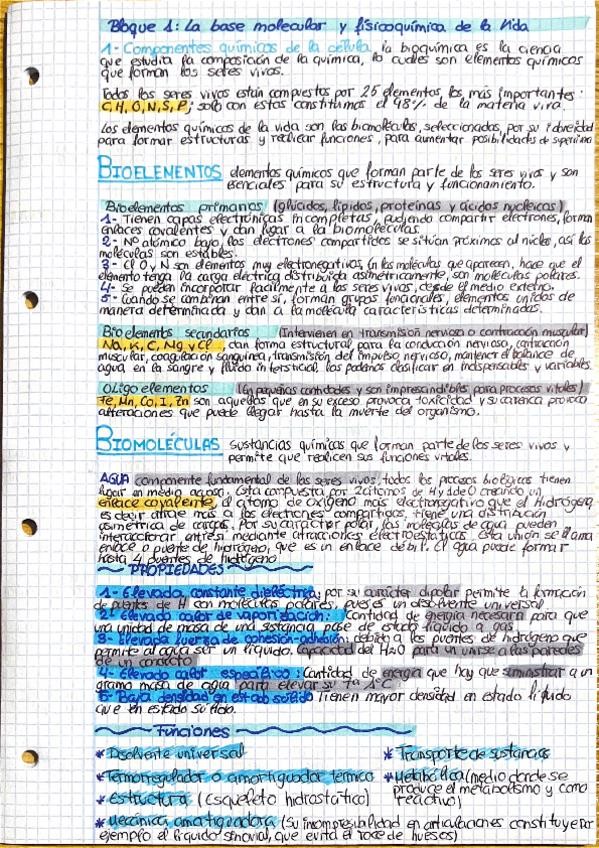 Bloque 1: La base molecular y fisicoquímica de la vida
1- Componentes químicos de la célula, la bioquímica es la ciencia
que estudia la composición de la química, lo cuales son elementos químicos
que forman los seres vivos.
Todos los seres vivos están compuestos por 25 elementos, los más importantes:
C, H, O, N, S, P; solo con estas constituimos el 98% de la materia viva.
Los elementos químicos de la vida son las biomoléculas, seleccionadas, por su idoneidad
para formar estructuras y realizar funciones, para aumentar posibilidades de
BIOELEMENTOS elementos químicos que forman parte de los seres vivos y son
esenciales para su estructura y funcionamiento.
Bioelementos primarios (glúcidos, lípidos, proteínas y ácidos nucleicos)
1- Tienen capas electrónicas incompletas, pudiendo compartir electrones, forman
enlaces covalentes y dan lugar a la biomoléculas.
2- Nº atómico bajo, los electrones compartidos se sitúan próximos al núcleo, así las
moléculas son estables.
3- El O y N son elementos muy electronegativos, en las moléculas que aparecen, hace que el
elemento tenga la carga eléctrica distribuida asimétricamente, son moléculas polares.
4- Se pueden incorporar facilmente a los seres vivos, desde el medio externo.
5- Cuando se combinan entre sí, forman grupos funcionales, elementos unidos de
manera determinada y dan a la molécula características determinadas.
Bioelementos secundarios (Intervienen en transmisión nerviosa o contracción muscular)
Na, K, C, Mg y Cl, dan forma estructural, para la conducción nerviosa, contracción
muscular, coagulación sanguínea, transmisión del impulso nervioso, mantener el balance de
agua en la sangre y fluido intersticial, los podemos clasificar en indispensables y variables.
Oligoelementos (En pequeñas cantidades y son imprescindibles para procesos vitales)
Fe, Mn, Co, I, Zn son aquellos que en su exceso provoca toxicidad y su carencia provoca
alteraciones que puede llegar hasta la muerte del organismo.
BIOMOLÉCULAS sustancias químicas que forman parte de los seres vivos y
permite que realicen sus funciones vitales.
AGUA componente fundamental de los seres vivos, todos los procesos biológicos tienen
lugar en medio acuoso. Esta compuesta por 2 átomos de H y 1 de O creando un
enlace covalente, el átomo de oxígeno más electronegativo que el hidrógeno,
es decir atrae más a los electrones compartidos, tiene una distribución
asimétrica de cargas. Por su carácter polar, las moléculas de agua pueden
interaccionar entre sí mediante atracciones electroestáticas. Esta unión se llama
enlace o puente de hidrógeno, que es un enlace débil. El agua puede formar
hasta 4 puentes de hidrógeno.
PROPIEDADES
1- Elevada constante dieléctrica: por su carácter dipolar permite la formación
de puentes de H con moléculas polares, pues es un disolvente universal.
2- Elevado calor de vaporización: Cantidad de energía necesaria para que
una unidad de masa de una sustancia pase de estado líquido a gas.
3- Elevada fuerza de cohesión-adhesión: debido a los puentes de hidrógeno que
permite al agua ser un líquido. capacidad del H2O para unirse a las paredes
de un conducto
4- Elevado calor específico: Cantidad de energía que hay que suministrar a un
gramo masa de agua para elevar su tª 1ºC
5- Baja densidad en estado sólido Tienen mayor densidad en estado líquido
que en estado sólido.
Funciones
* Disolvente universal
* Transporte de sustancias
* Termorregulador o amortiguador térmico
* Metabólica (medio donde se
produce el metabolismo y como
reactivo)
* Estructura (Esqueleto hidrostático)
* Mecánica amortiguadora (Su incompresibilidad en articulaciones constituye por
ejemplo el líquido sinovial, que evita el roce de huesos)